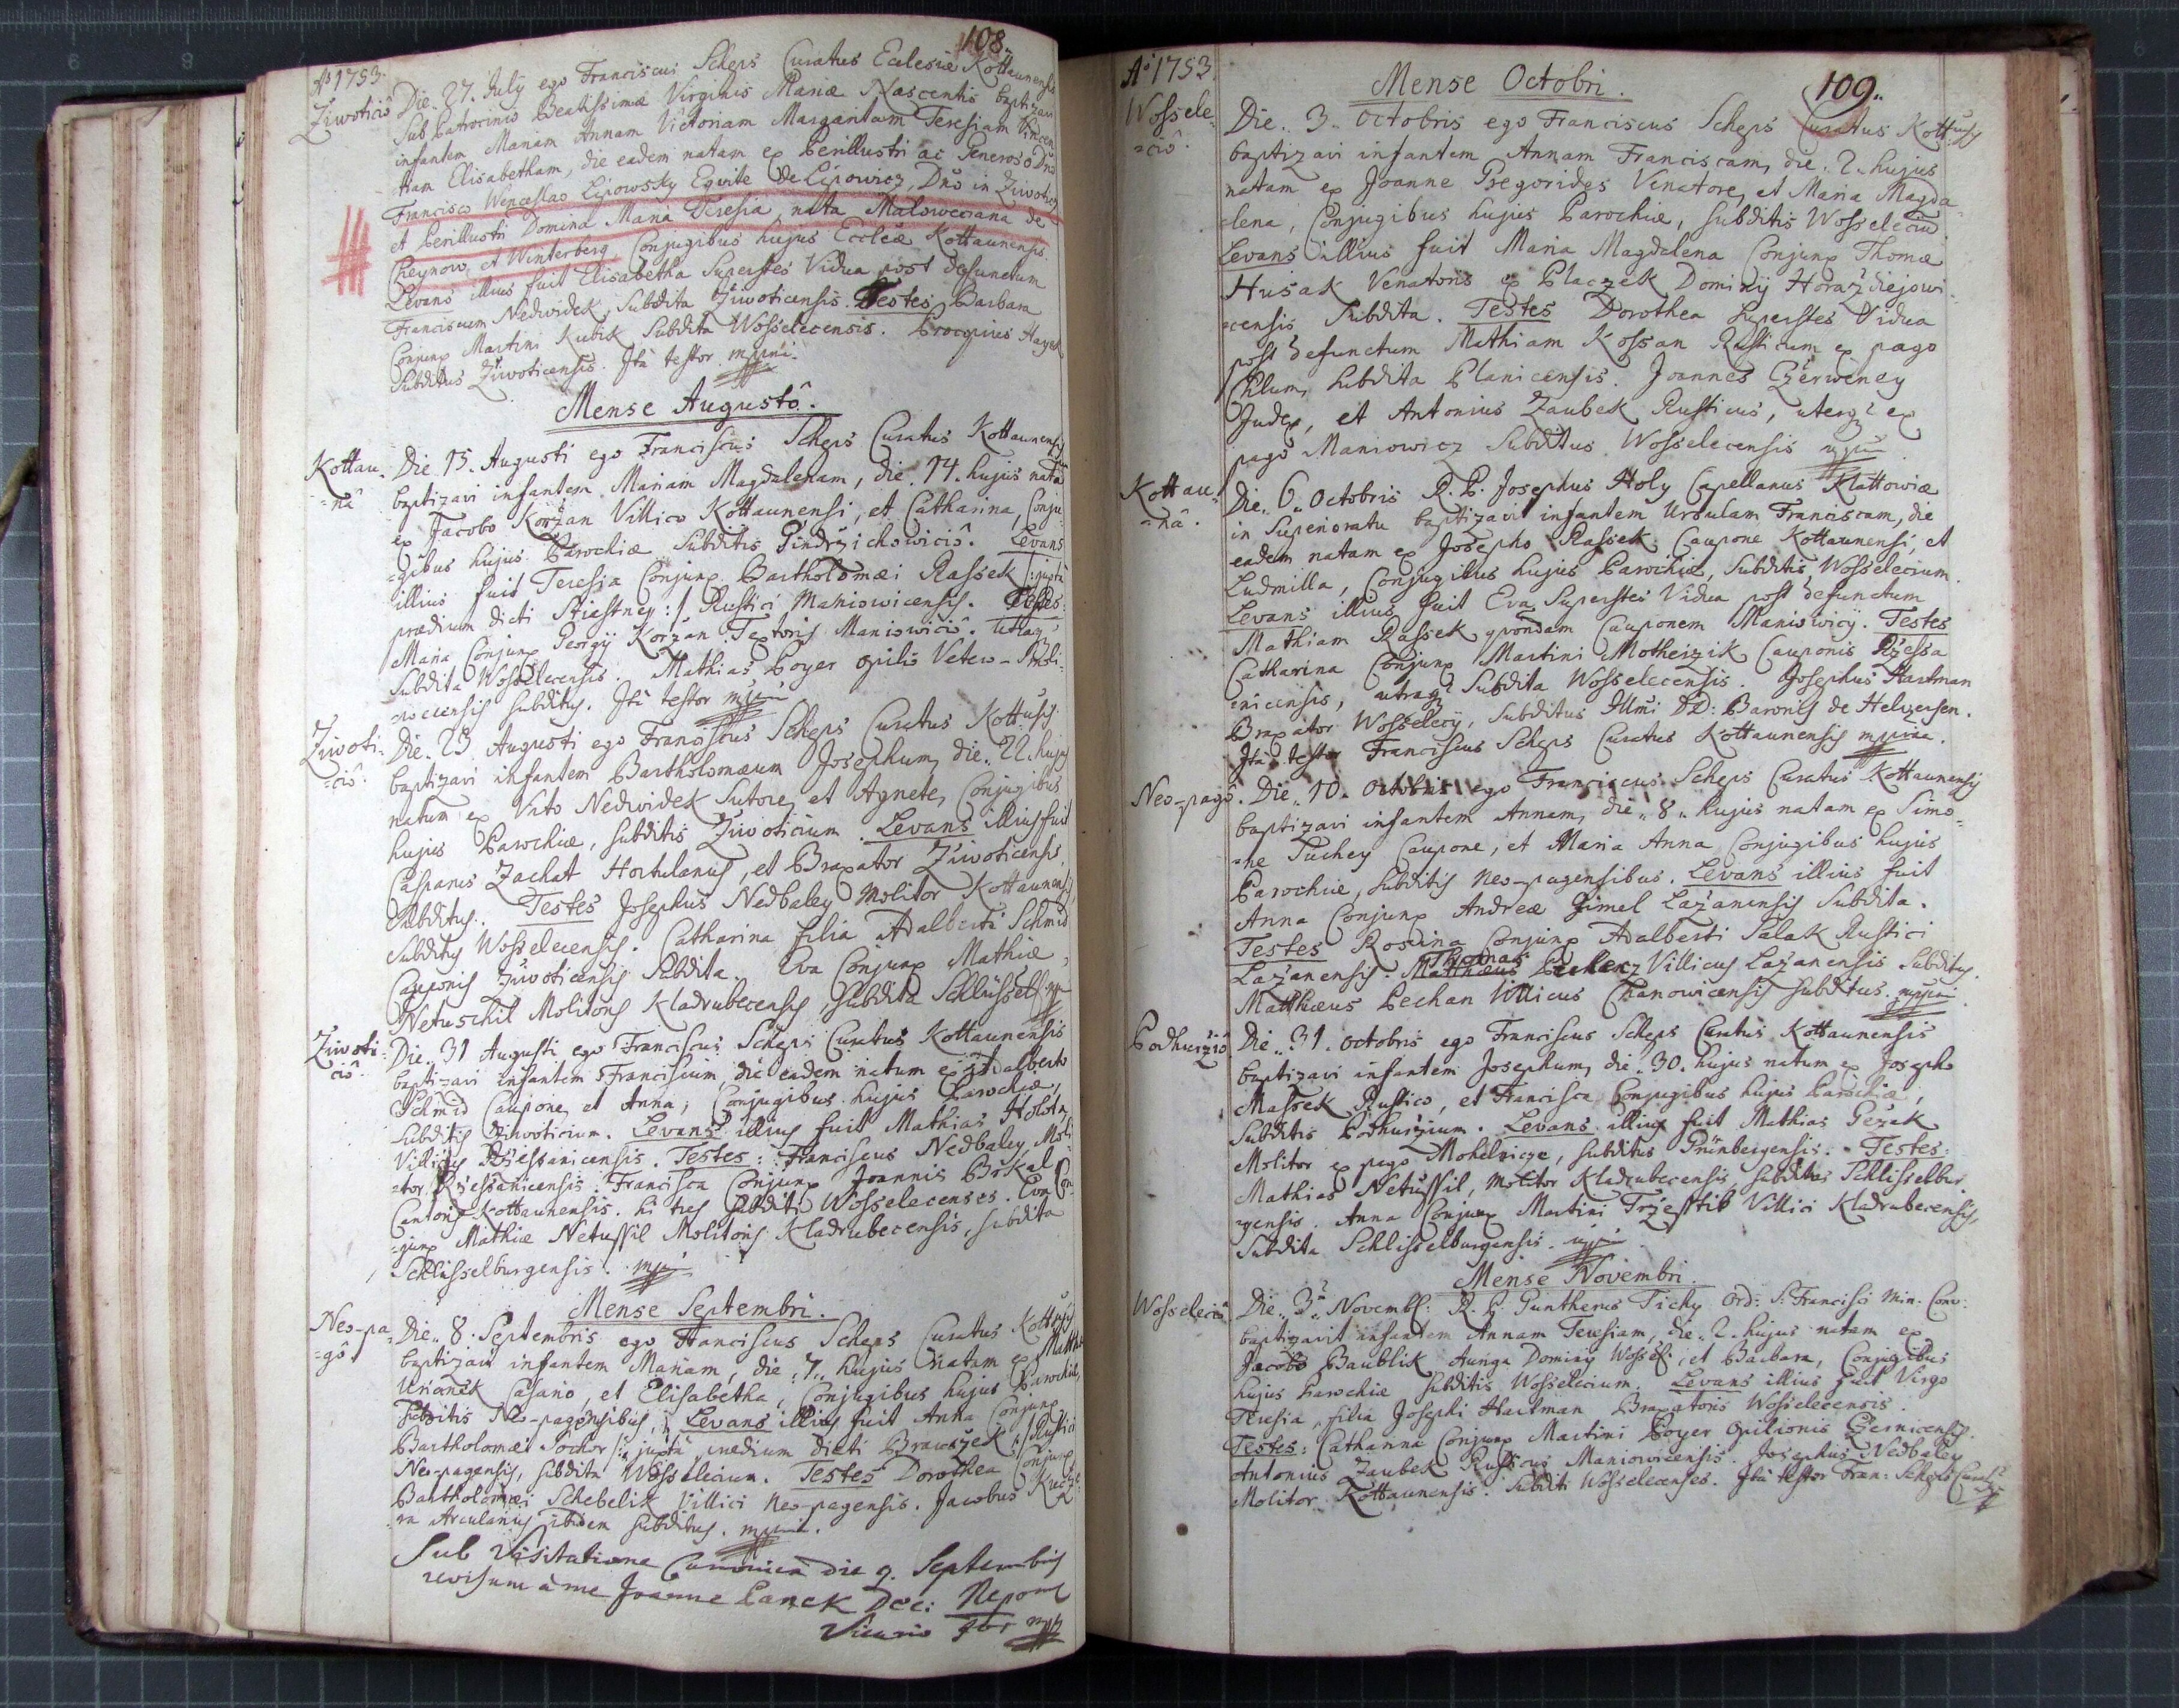 108.
Aº 1753.
Ziwoticiô
Die 27. July ego Franciscus Scheps Curatus Ecclesiæ Kottaunensis
sub Patrocinio Beatissimæ Virginis Mariæ Nascentis baptizavi
infantem Mariam Annam Victoriam Margaritam Teresiam Vincen
tiam Elisabetham, die eadem natam ex Perillustri ac Generoso Dno
Francisco Wenceslao Lipowsky Equite de Lipowicz, Dno in Ziwotic
et Perillustri Domina Maria Teresia nata Malowecziana de
Cheynow, et Winterberg Conjugibus hujus Eccleæ Kottaunensis.
Levans illius fuit Elisabetha Superstes Vidua post defunctum
Franciscum Nedwidek, Subdita Ziwoticensis. Testes Barbara
Conjunx Martini Kubik Subdita Wosselecensis. Procopius Hayek
Subditus Ziwoticensis. Ita testor mppria.
Mense Augustô.
Kottau-
=nâ
Die 15. Augusti ego Franciscus Scheps Curatus Kottaunensis
baptizavi infantem Mariam Magdalenam, die 14. hujus natã
ex Jacobo Koržan Villico Kottaunensi, et Catharina, Conju-
=gibus hujus Parochiæ Subditis Gindrzichowiciô. Levans
illius fuit Teresia Conjunx Bartholomæi Rassek /:juxta
prædium dicti Stiestney:/ Rustici Maniowicensis. Testes:
Maria Conjunx Georgij Koržan Textoris Maniowiciô. Utraqz
Subdita Wosselecensis. Mathias Poyer opilio Vetero-Smoli-
=wecensis subditus. Ita testor mppria
Ziwoti-
=ciô.
Die 23 Augusti ego Franciscus Scheps Curatus Kottusis
baptizavi infantem Bartholomæum Josephum, die 22. hujus
natum ex Vito Nedwidek Sutore, et Agnete, Conjugibus
hujus Parochiæ, subditis Ziwoticium. Levans illius fuit
Casparus Zachat Hortulanus, et Braxator Ziwoticensis,
Subditus. Testes Josephus Nedbaley Molitor Kottaunensis,
Subditus Wosselecensis. Catharina filia Adalberti Schmid
Cauponis Ziwoticensis Subdita. Eva Conjunx Mathiæ
Netuschil Molitoris Kladrubecensis, Subdita Schlüsselb. mp
Ziwoti-
ciô.
Die 31 Augusti ego Franciscus Scheps Curatus Kottaunensis
baptizavi infantem Franciscum, die eadem natum ex Adalberto
Schmid Caupone, et Anna, Conjugibus hujus Parochiæ,
Subditis Ziwoticium. Levans illius fuit Mathias Holota
Villicus Rzesanicensis. Testes: Franciscus Nedbaley, Moli-
=tor Rzesanicensis. Francisca Conjunx Joannis Bokal
Cantoris Kottaunensis. hi tres Subditi Wosselecenses. Eva Con-
=junx Mathiæ Netussil Molitoris Kladrubecensis, subdita
Schlüsselburgensis. mp
Mense Septembri.
Neo-pa-
=gô.
Die 8. Septembris ego Franciscus Scheps Curatus Kottusis
baptizavi infantem Mariam, die 7. hujus natam ex Matthæo
Urianek Casario, et Elisabetha, Conjugibus hujus Parochiæ,
Subditis Neo-pagensibus. Levans illius fuit Anna Conjunx
Bartholomæi Sochor /: juxta prædium dicti Brawczek :/ Rustici
Neo-pagensis, subdita Wosselecium. Testes Dorothea Conjunx
Bartholomæi Schebelik Villici Neo-pagensis. Jacobus Kucze-
ra Arcularius ibidem subditus. mppria.
Sub Visitatione Canonica die 9. Septembris
revisum à me Joanne Panek Dec: Nepom
Vicario mpp
Aº 1753.
109.
Mense Octobri.
Wossele-
=ciô.
Die 3. Octobris ego Franciscus Scheps Curatus Kottusis
baptizavi infantem Annam Franciscam, die 2. hujus
natam ex Joanne Gregorides Venatore, et Maria Magda-
=lena, Conjugibus hujus Parochiæ, Subditis Wosseleciũ.
Levans illius fuit Maria Magdalena Conjunx Thomæ
Husak Venatoris ex Placzek Dominij Horazdiejowi-
=censis Subdita. Testes Dorothea Superstes Vidua
post defunctum Mathiam Kossan Rusticum ex pago
Chlum, Subdita Planicensis. Joannes Czerweney
Judex, et Antonius Zaubek Rusticus, uterqz ex
pago Maniowicz Subditus Wosselecensis mpp
Kottau-
=nâ.
Die 6. Octobris R. P. Josephus Holy Capellanus Klattowiæ
in Superioratu baptizavit infantem Ursulam Franciscam, die
eadem natam ex Josepho Rassek Caupone Kottaunensi, et
Ludmilla, Conjugibus hujus Parochiæ, Subditis Wosselecium.
Levans illius fuit Eva Superstes Vidua post defunctum
Mathiam Rassek quondam Cauponem Maniowicij. Testes
Catharina Conjunx Martini Motheizik Cauponis Rzessa
enicensis, utraqz Subdita Wosselecensis. Josephus Hartman
Braxator Wosselecij, Subditus Illmi DD: Baronis de Helversen.
Ita testor Franciscus Scheps Curatus Kottaunensis mppria.
Neo-pagô.
Die 10. Octobris ego Franciscus Scheps Curatus Kottaunensis
baptizavi infantem Annam, die 8. hujus natam ex Simo-
=ne Suchey Caupone, et Maria Anna Conjugibus hujus
Parochiæ, Subditis Neo-pagensibus. Levans illius fuit
Anna Conjunx Andreæ Zimel Lažanensis Subdita.
Testes Rosina Conjunx Adalberti Salak Rustici
Lažanensis. Thomas Villicus Lažanensis Subditus.
Matthæus Pechan Villicus Chanowicensis subditus. mppria
Podhuržiô
Die 31. Octobris ego Franciscus Scheps Curatus Kottaunensis
baptizavi infantem Josephum, die 30. hujus natum ex Josepho
Massek Rustico, et Francisca Conjugibus hujus Parochiæ,
Subditis Podhuržium. Levans illius fuit Mathias Gežek
Molitor ex pago Mohelnicze, subditus Grünbergensis. Testes:
Mathias Netussil, Molitor Kladrubecensis, subditus Schlisselbur
gensis. Anna Conjunx Martini Trzesstik Villici Kladrubecensis,
Subdita Schlisselburgensis. mpp
Mense Novembri.
Wosseleciô
Die 3. Novembr: R. P. Guntherus Tichy Ord: S: Francisci Min. Conv:
baptizavit infantem Annam Teresiam, die 2. hujus natam ex
Jacobo Baublik Auriga Dominij Wossel:, et Barbara, Conjugibus
hujus Parochiæ Subditis Wosselecium. Levans illius fuit Virgo
Teresia, filia Josephi Hartman Braxatoris Wosselecensis.
Testes: Catharina Conjunx Martini Poyer Opilionis Czernicensis.
Antonius Zaubek Rusticus Maniowicensis. Josephus Nedbaley
Molitor Kottaunensis. Subditi Wosselecenses. Ita testor Fran: Scheps Curat